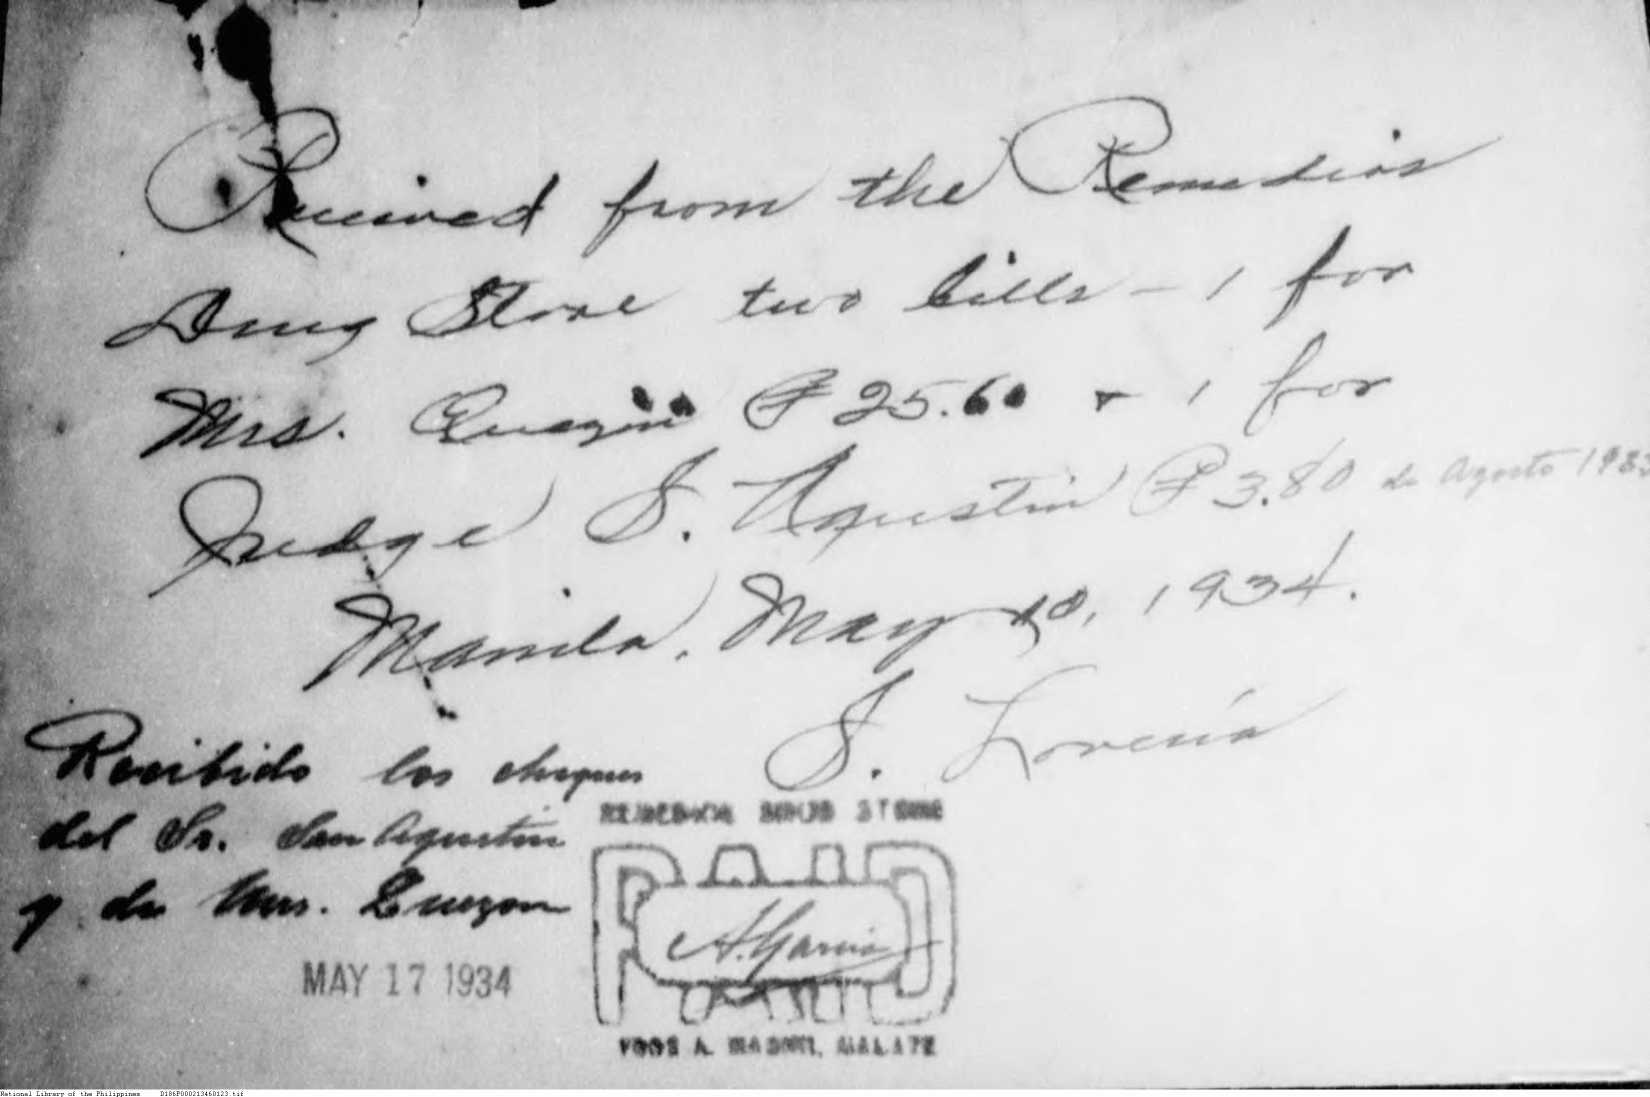 Received from the Remedios
Drug Store two bills - 1 for
Mrs. Quezon ₱25.60 + 1 for
Judge S. Agustin ₱3.80 de Agosto 1933
Manila, May 10, 1934.
S. Lovería
Recibido los cheques
del Sr. San Agustin
y de Mrs. Quezon
MAY 17 1934
REMEDIOS DRUG STORE
PAID
A. Garcia
A. MABINI, MALATE
National Library of the Philippines D186P000213460123.tif